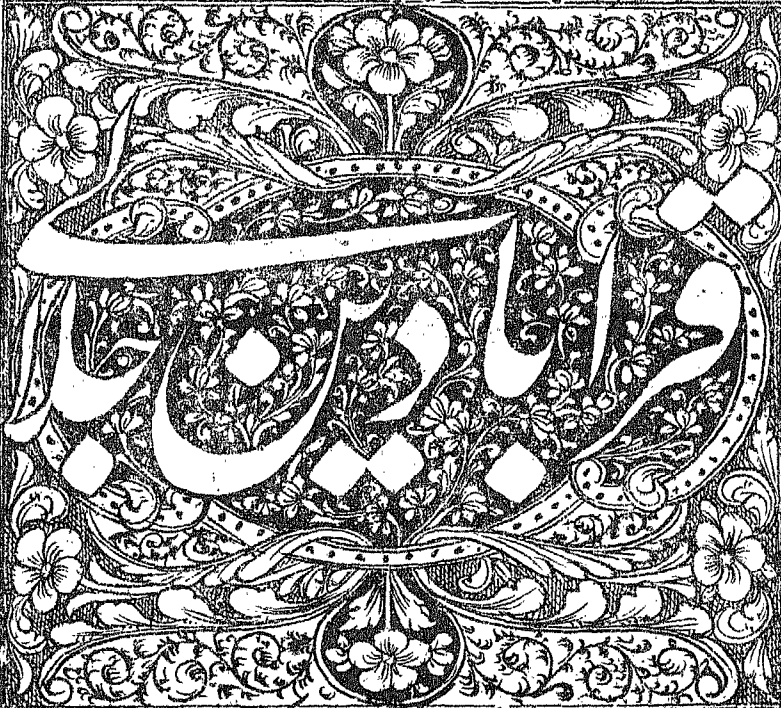 قرابادین جلالی